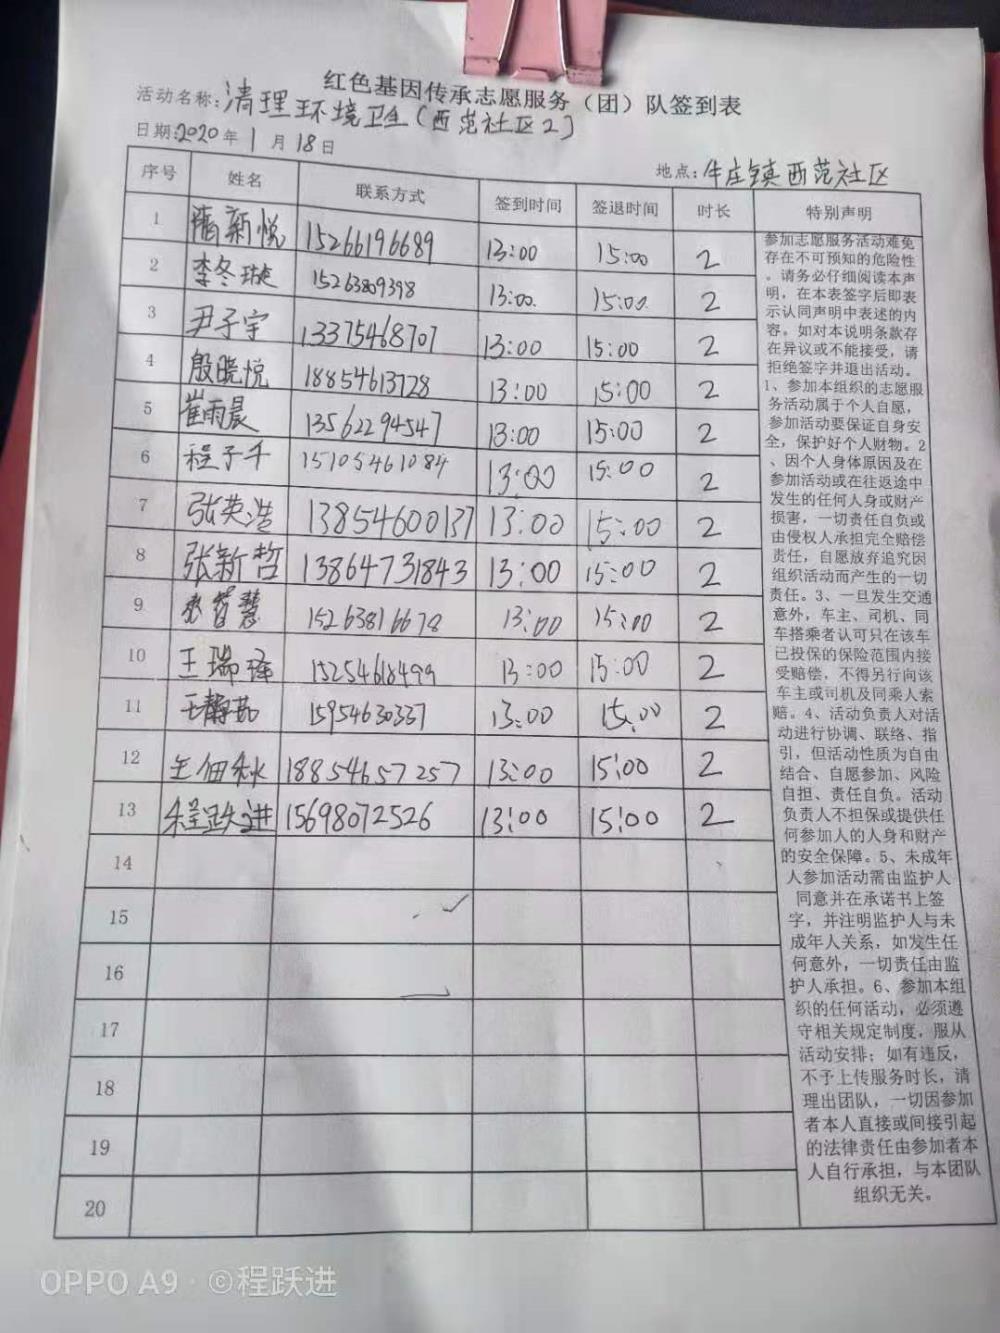 红色基因传承志愿服务（团）队签到表
活动名称：清理环境卫生（西范社区2）
日期：2020年1月18日
地点：牛庄镇西范社区
序号 姓名 联系方式 签到时间 签退时间 时长 特别声明
1 蒋新悦 15266196689 13:00 15:00 2
2 李冬璇 15263809398 13:00 15:00 2
3 尹子宇 13375468707 13:00 15:00 2
4 殷晓悦 18854613728 13:00 15:00 2
5 崔雨晨 13562294547 13:00 15:00 2
6 程子千 15105461084 13:00 15:00 2
7 张英浩 13854600137 13:00 15:00 2
8 张新哲 13864731843 13:00 15:00 2
9 智慧 15263816678 13:00 15:00 2
10 王瑞泽 15254618499 13:00 15:00 2
11 王静茹 15954630337 13:00 15:00 2
12 王佃秋 18854657257 13:00 15:00 2
13 程跃进 15698072526 13:00 15:00 2
14
15
16
17
18
19
20
参加志愿服务活动难免
存在不可预知的危险性
。请务必仔细阅读本声
明，在本表签字后即表
示认同声明中表述的内
容。如对本说明条款存
在异议或不能接受，请
拒绝签字并退出活动。
1、参加本组织的志愿服
务活动属于个人自愿，
参加活动要保证自身安
全，保护好个人财物。2
、因个人身体原因及在
参加活动或在往返途中
发生的任何人身或财产
损害，一切责任自负或
由侵权人承担完全赔偿
责任，自愿放弃追究因
组织活动而产生的一切
责任。3、一旦发生交通
意外，车主、司机、同
车搭乘者认可只在该车
已投保的保险范围内接
受赔偿，不得另行向该
车主或司机及同乘人索
赔。4、活动负责人对活
动进行协调、联络、指
引，但活动性质为自由
结合、自愿参加、风险
自担、责任自负。活动
负责人不担保或提供任
何参加人的人身和财产
的安全保障。5、未成年
人参加活动需由监护人
同意并在承诺书上签
字，并注明监护人与未
成年人关系，如发生任
何意外，一切责任由监
护人承担。6、参加本组
织的任何活动，必须遵
守相关规定制度，服从
活动安排；如有违反，
不予上传服务时长，清
理出团队，一切因参加
者本人直接或间接引起
的法律责任由参加者本
人自行承担，与本团队
组织无关。
OPPO A9 · ©程跃进